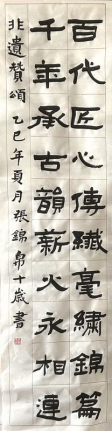 百代匠心傳纖毫繡錦篇
千年承古韻薪火永相連
非遺贊頌乙巳年夏月張錦帛十歲書